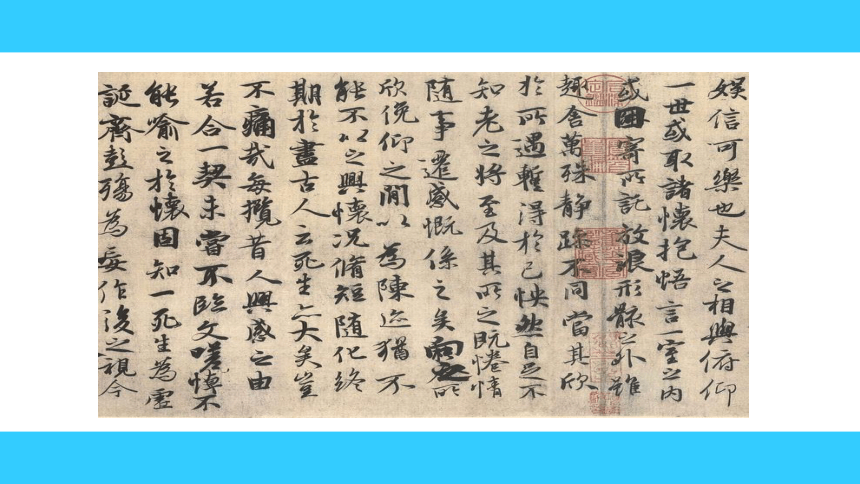 娛信可樂也夫人之相與俯仰
一世或取諸懷抱悟言一室之內
或因寄所託放浪形骸之外雖
趣舍萬殊静躁不同當其欣
於所遇暫得於己怏然自足不
知老之將至及其所之既惓情
隨事遷感慨係之矣向之所
欣俛仰之閒以為陳迹猶不
能不以之興懷況脩短隨化終
期於盡古人云死生亦大矣豈
不痛哉每攬昔人興感之由
若合一契未嘗不臨文嗟悼不
能喻之於懷固知一死生為虛
誕齊彭殤為妄作後之視今